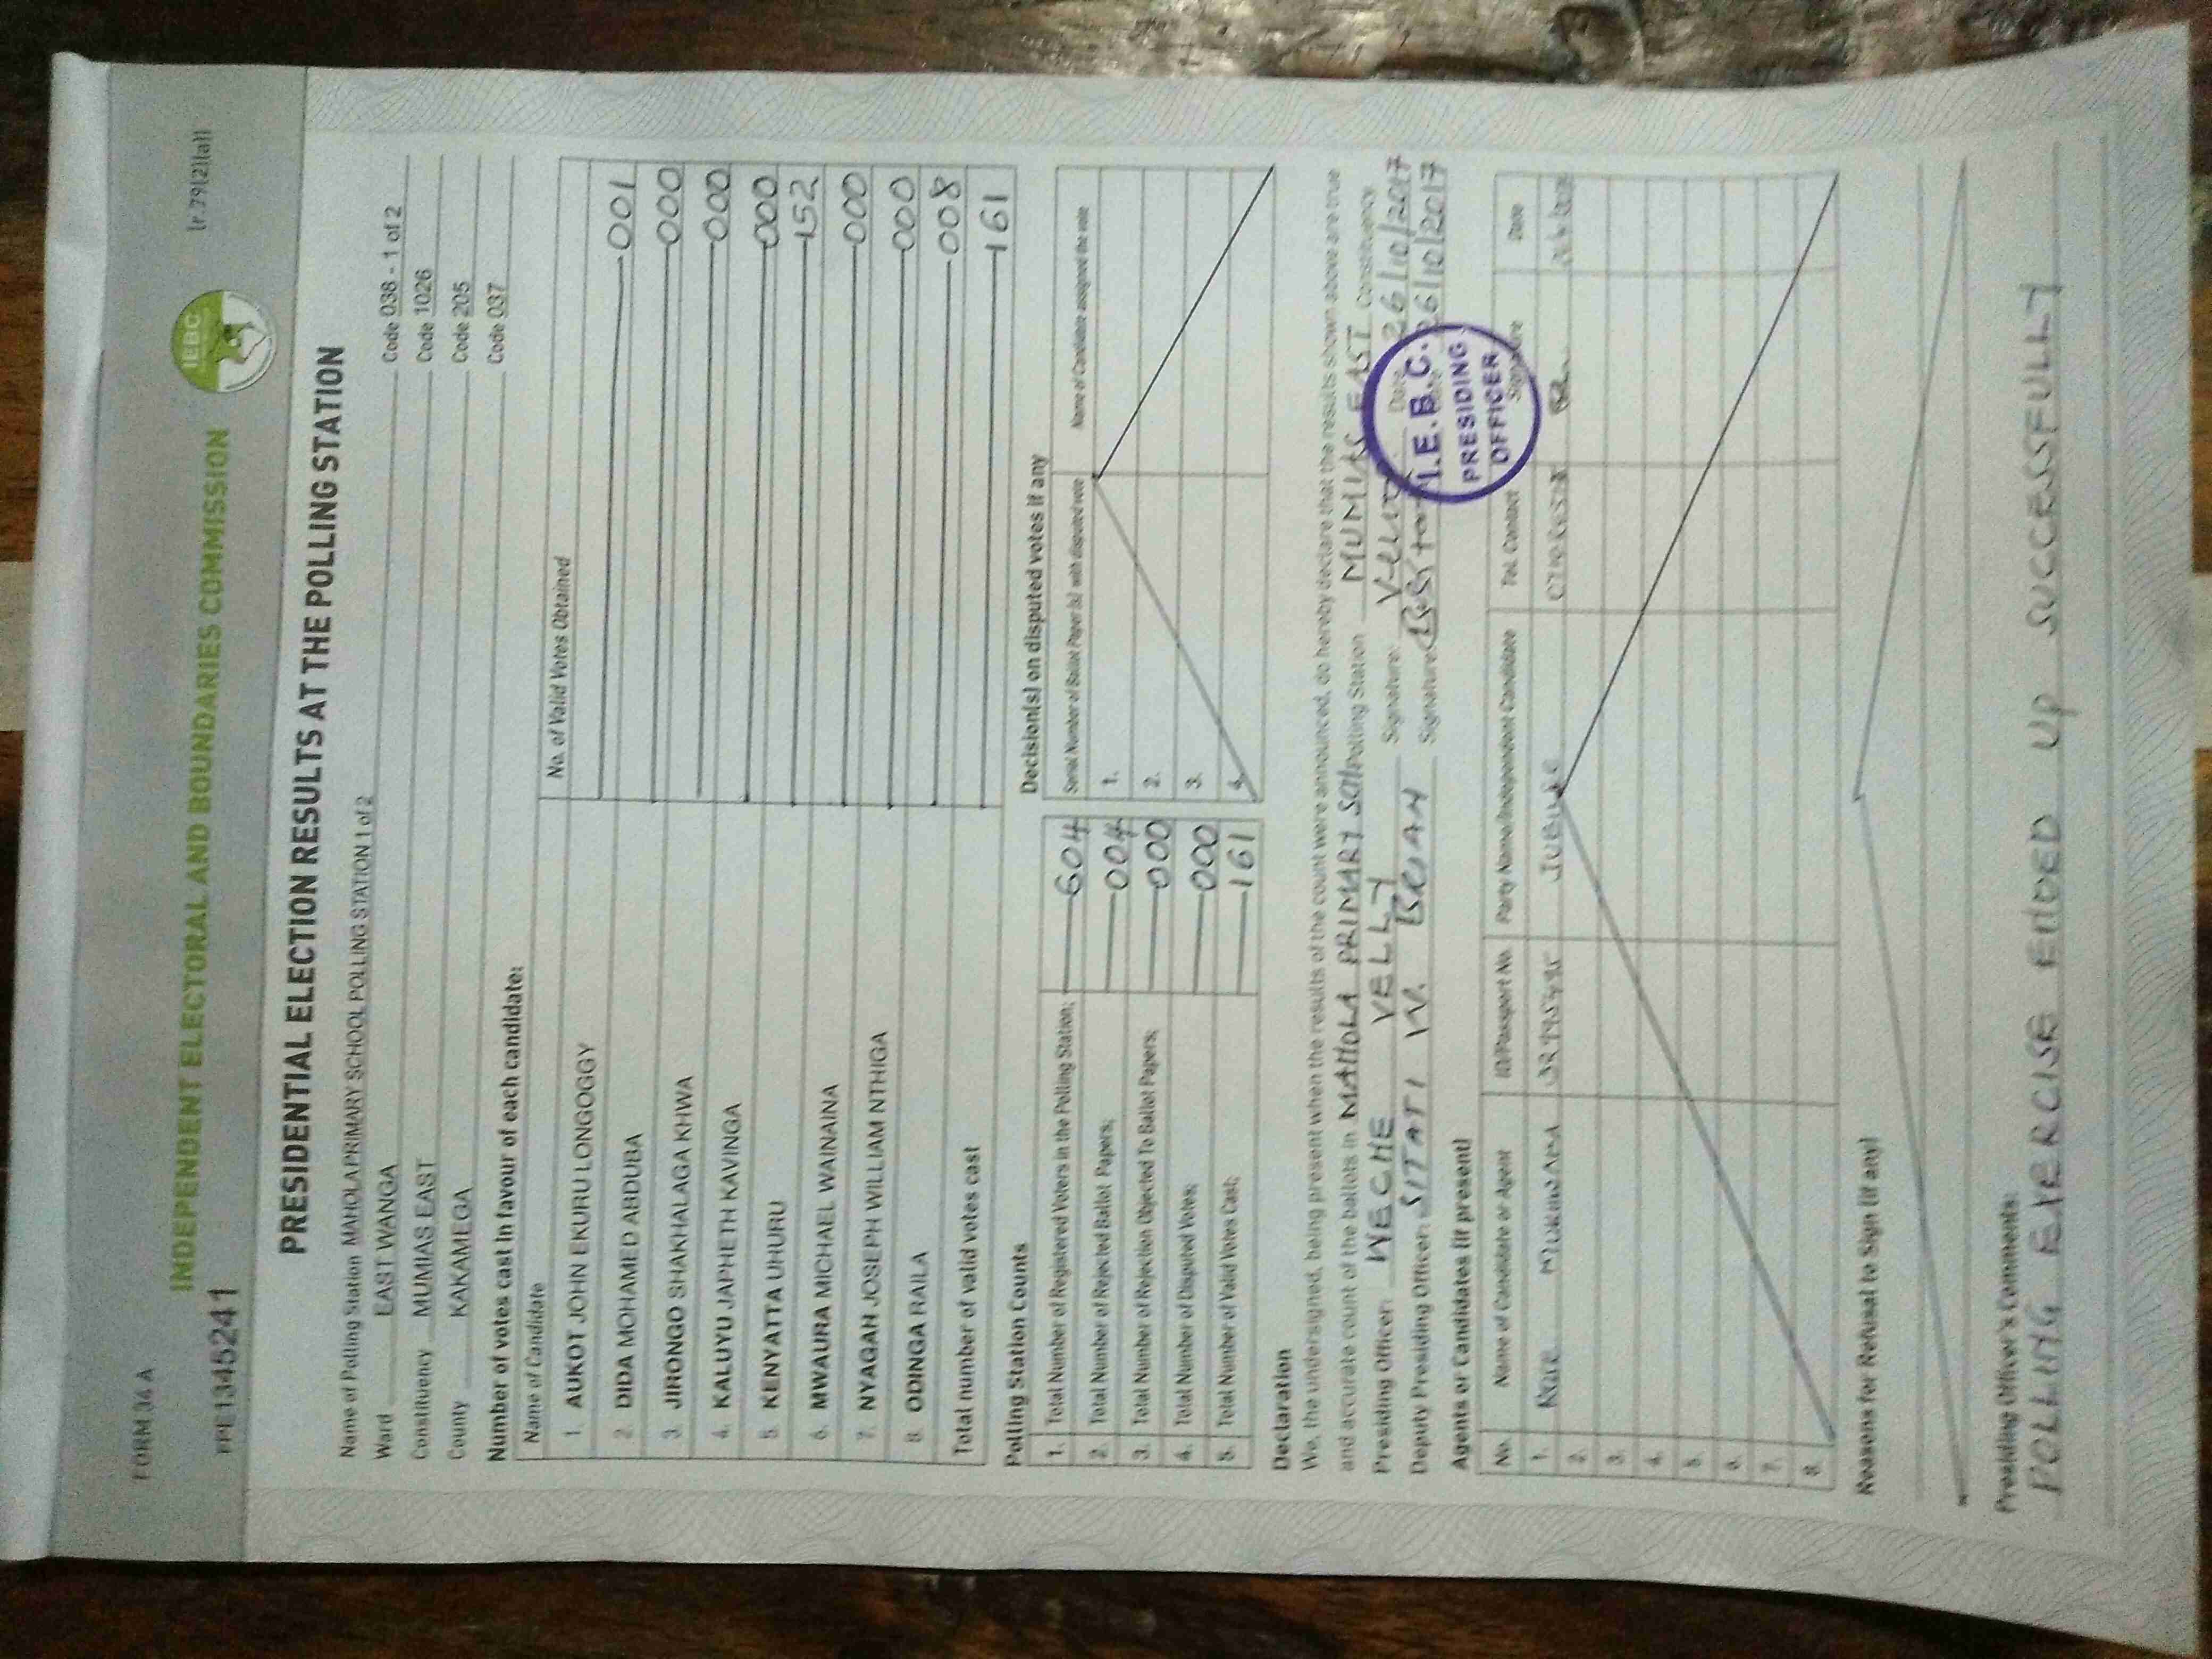 FORM 34 A
[r.79(2)(a)]
INDEPENDENT ELECTORAL AND BOUNDARIES COMMISSION
IEBC
1345241
PRESIDENTIAL ELECTION RESULTS AT THE POLLING STATION
Name of Polling Station MAHOLA PRIMARY SCHOOL POLLING STATION 1 of 2 Code 038 - 1 of 2
Ward EAST WANGA Code 1026
Constituency MUMIAS EAST Code 205
County KAKAMEGA Code 037
Number of votes cast in favour of each candidate:
Name of Candidate No. of Valid Votes Obtained
1. AUKOT JOHN EKURU LONGOGGY 001
2. DIDA MOHAMED ABDUBA 000
3. JIRONGO SHAKHALAGA KHWA 000
4. KALUYU JAPHETH KAVINGA 000
5. KENYATTA UHURU 152
6. MWAURA MICHAEL WAINAINA 000
7. NYAGAH JOSEPH WILLIAM NTHIGA 000
8. ODINGA RAILA 008
Total number of valid votes cast 161
Polling Station Counts
1. Total Number of Registered Voters in the Polling Station; 604
2. Total Number of Rejected Ballot Papers; 004
3. Total Number of Rejection Objected To Ballot Papers; 000
4. Total Number of Disputed Votes; 000
5. Total Number of Valid Votes Cast; 161
Decision(s) on disputed votes if any
Serial Number of Ballot Paper (s) with disputed vote Name of Candidate assigned the vote
1.
2.
3.
4.
Declaration
We, the undersigned, being present when the results of the count were announced, do hereby declare that the results shown above are true
and accurate count of the ballots in MAHOLA PRIMARY Polling Station MUMIAS EAST Constituency
Presiding Officer: WECHE VELLY Signature: Date 26/10/2017
Deputy Presiding Officer: SITATI W. BRIAN Signature: 26/10/2017
I.E.B.C.
PRESIDING
OFFICER
Agents or Candidates (if present)
No. Name of Candidate or Agent ID/Passport No. Party Name/Independent Candidate Tel. Contact Signature Date
1. MUKHWANA JUBILEE
2.
3.
4.
5.
6.
7.
8.
Reasons for Refusal to Sign (if any)
Presiding Officer's Comments:
POLLING EXERCISE ENDED UP SUCCESSFULLY